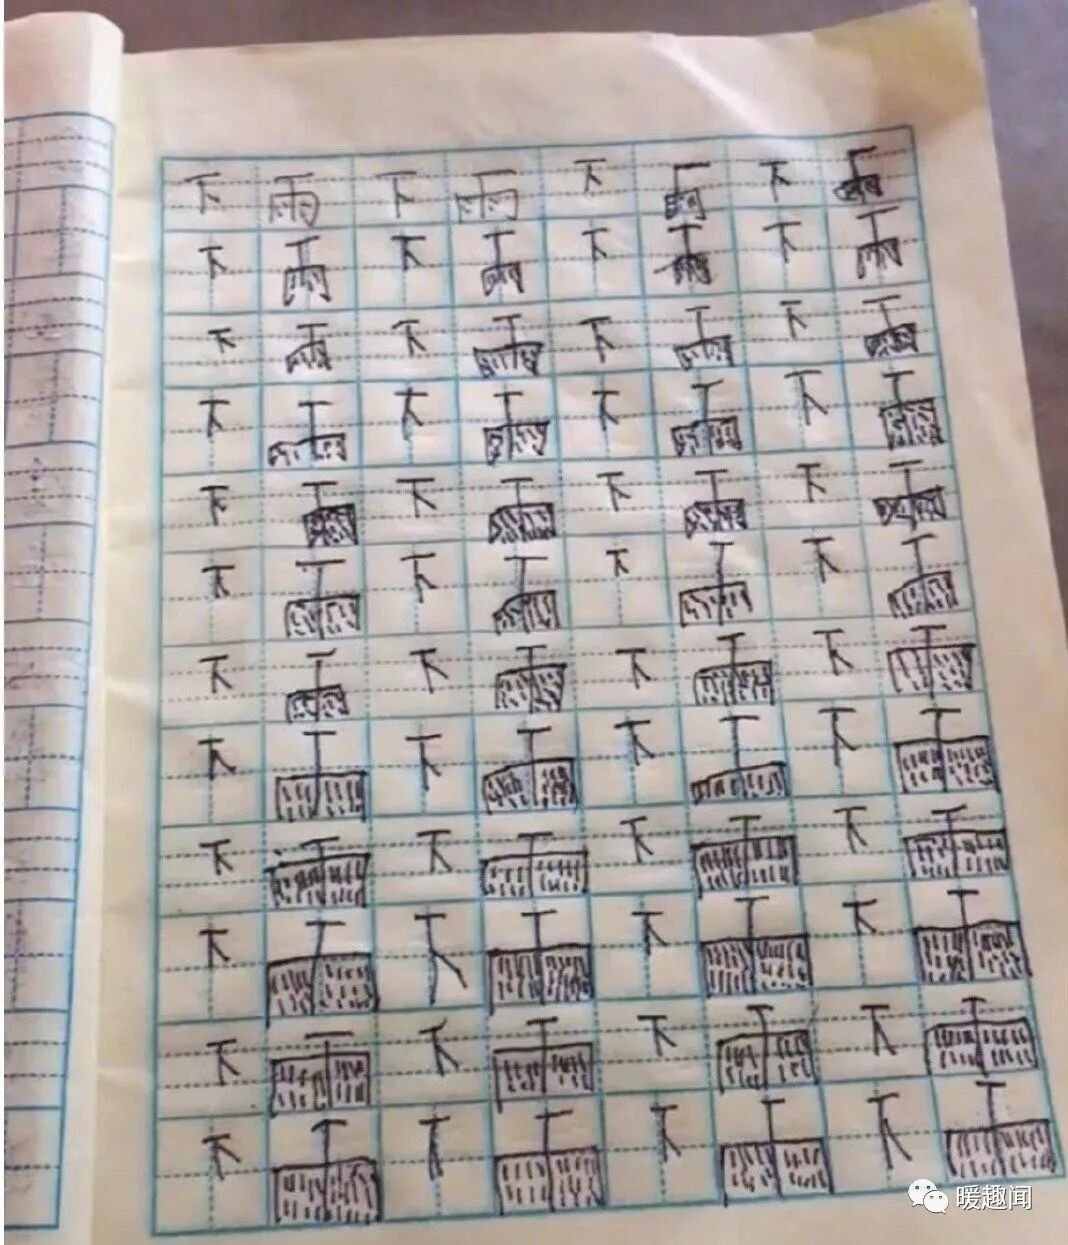 下雨下雨下雨下雨
下雨下雨下雨下雨
下雨下雨下雨下雨
下雨下雨下雨下雨
下雨下雨下雨下雨
下雨下雨下雨下雨
下雨下雨下雨下雨
下雨下雨下雨下雨
下雨下雨下雨下雨
下雨下雨下雨下雨
下雨下雨下雨下雨
下雨下雨下雨下雨
暖趣闻